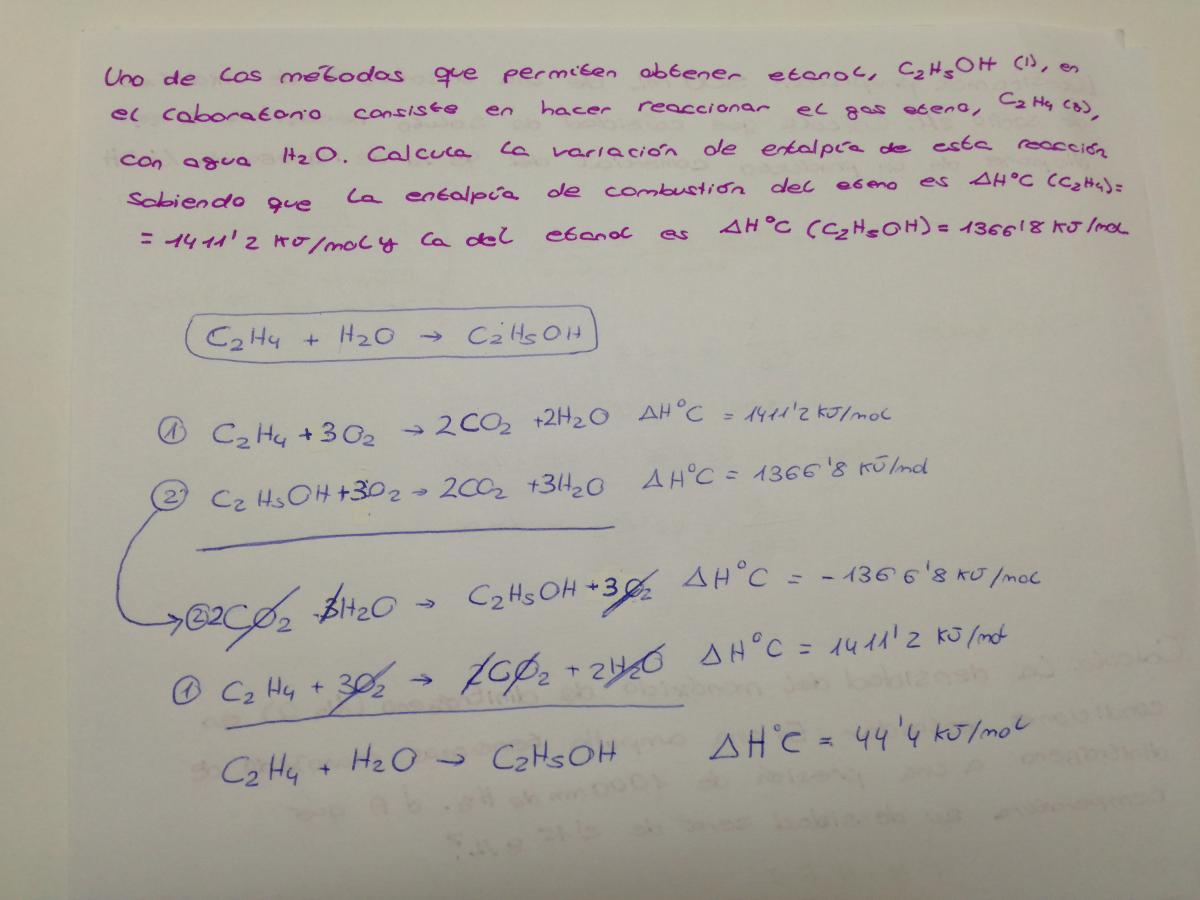 Uno de los métodos que permiten obtener etanol, C2H5OH (l), en
el laboratorio consiste en hacer reaccionar el gas eteno, C2H4 (g),
con agua H2O. Calcula la variación de entalpía de esta reacción
sabiendo que la entalpía de combustión del eteno es ΔH°C (C2H4)=
= 1411'2 KJ/mol y la del etanol es ΔH°C (C2H5OH) = 1366'8 KJ/mol
C2H4 + H2O → C2H5OH
① C2H4 + 3O2 → 2CO2 + 2H2O ΔH°C = 1411'2 KJ/mol
② C2H5OH + 3O2 → 2CO2 + 3H2O ΔH°C = 1366'8 KJ/mol
② 2CO2 3H2O → C2H5OH + 3O2 ΔH°C = -1366'8 KJ/mol
① C2H4 + 3O2 → 2CO2 + 2H2O ΔH°C = 1411'2 KJ/mol
C2H4 + H2O → C2H5OH ΔH°C = 44'4 KJ/mol